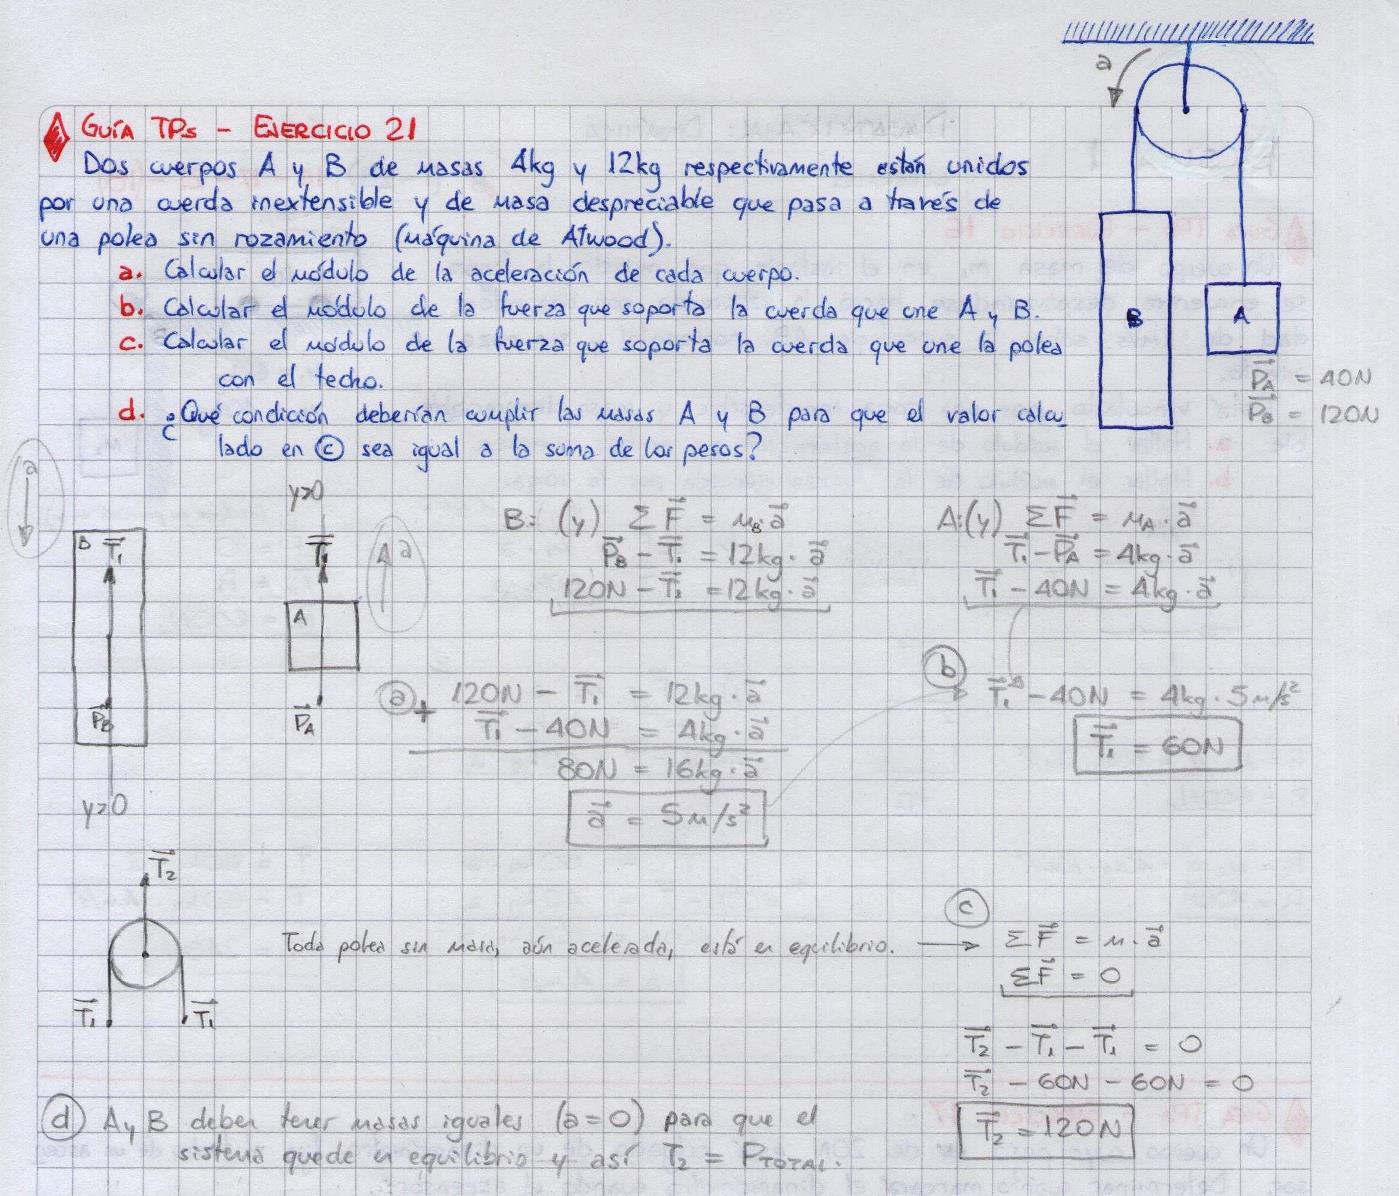 GUÍA TPs - EJERCICIO 21
Dos cuerpos A y B de masas 4kg y 12kg respectivamente están unidos
por una cuerda inextensible y de masa despreciable que pasa a través de
una polea sin rozamiento (máquina de Atwood).
a. Calcular el módulo de la aceleración de cada cuerpo.
b. Calcular el módulo de la fuerza que soporta la cuerda que une A y B.
c. Calcular el módulo de la fuerza que soporta la cuerda que une la polea
con el techo.
d. ¿Qué condición deberían cumplir las masas A y B para que el valor calcu_
lado en ⓒ sea igual a la suma de los pesos?
a
B
A
P⃗A = 40N
P⃗B = 120N
a
B T⃗₁
P⃗B
y>0
y>0
T⃗₁
A
P⃗A
a
B: (y) Σ F⃗ = mB·a⃗
P⃗B - T⃗₁ = 12kg·a⃗
120N - T⃗₁ = 12kg·a⃗
A:(y) Σ F⃗ = mA·a⃗
T⃗₁ - P⃗A = 4kg·a⃗
T⃗₁ - 40N = 4kg·a⃗
ⓐ + 120N - T⃗₁ = 12kg·a⃗
T⃗₁ - 40N = 4kg·a⃗
80N = 16kg·a⃗
a⃗ = 5m/s²
ⓑ T⃗₁ - 40N = 4kg·5m/s²
T⃗₁ = 60N
T⃗₂
T⃗₁ T⃗₁
Toda polea sin masa, aún acelerada, está en equilibrio.
ⓒ
Σ F⃗ = m·a⃗
Σ F⃗ = 0
T⃗₂ - T⃗₁ - T⃗₁ = 0
T⃗₂ - 60N - 60N = 0
T⃗₂ = 120N
ⓓ A y B deben tener masas iguales (a=0) para que el
sistema quede en equilibrio y así T₂ = PTOTAL.